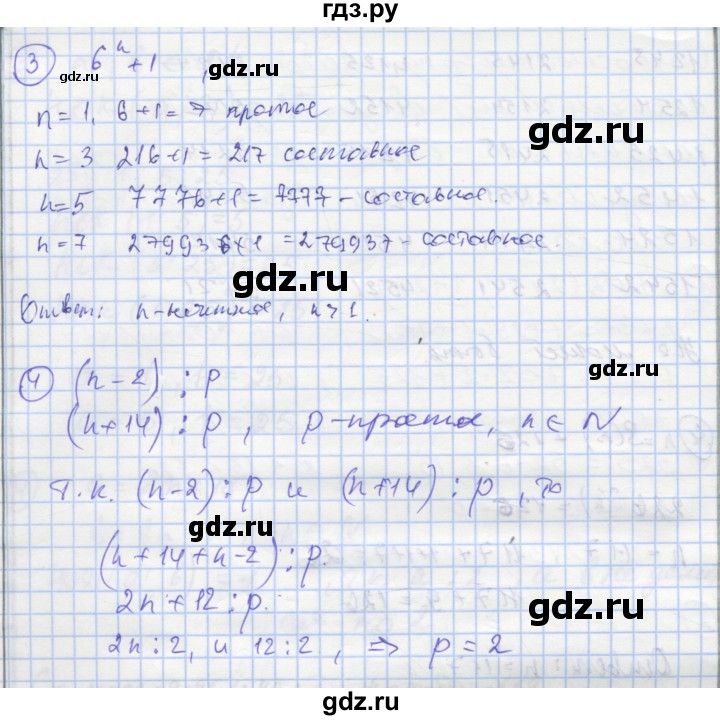 гдз.ру
3 6ⁿ + 1 ,
n = 1, 6 + 1 = 7 простое
n = 3 216 + 1 = 217 составное
n = 5 7776 + 1 = 7777 - составное.
n = 7 279936 + 1 = 279937 - составное.
Ответ: n - нечетное, n > 1.
4 (n - 2) ⋮ p
(n + 14) ⋮ p, p - простое, n ∈ N
Т.к. (n - 2) ⋮ p и (n + 14) ⋮ p, то
(n + 14 + n - 2) ⋮ p.
2n + 12 ⋮ p.
2n ⋮ 2, и 12 ⋮ 2, ⇒ p = 2
gdz.ru
gdz.ru
gdz.ru
gdz.ru
gdz.ru
gdz.ru
gdz.ru
gdz.ru
gdz.ru
gdz.ru